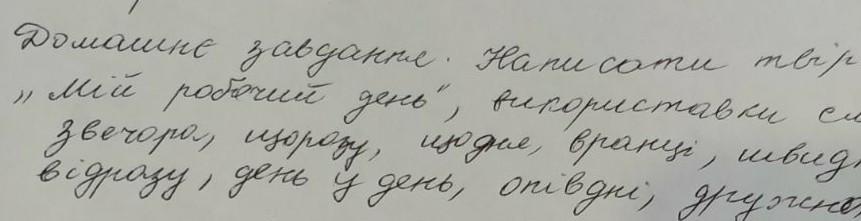 Домашнє завдання. Написати твір
„Мій робочий день", використавши
звечора, щоразу, щодня, вранці,
відразу, день у день, опівдні, дружно